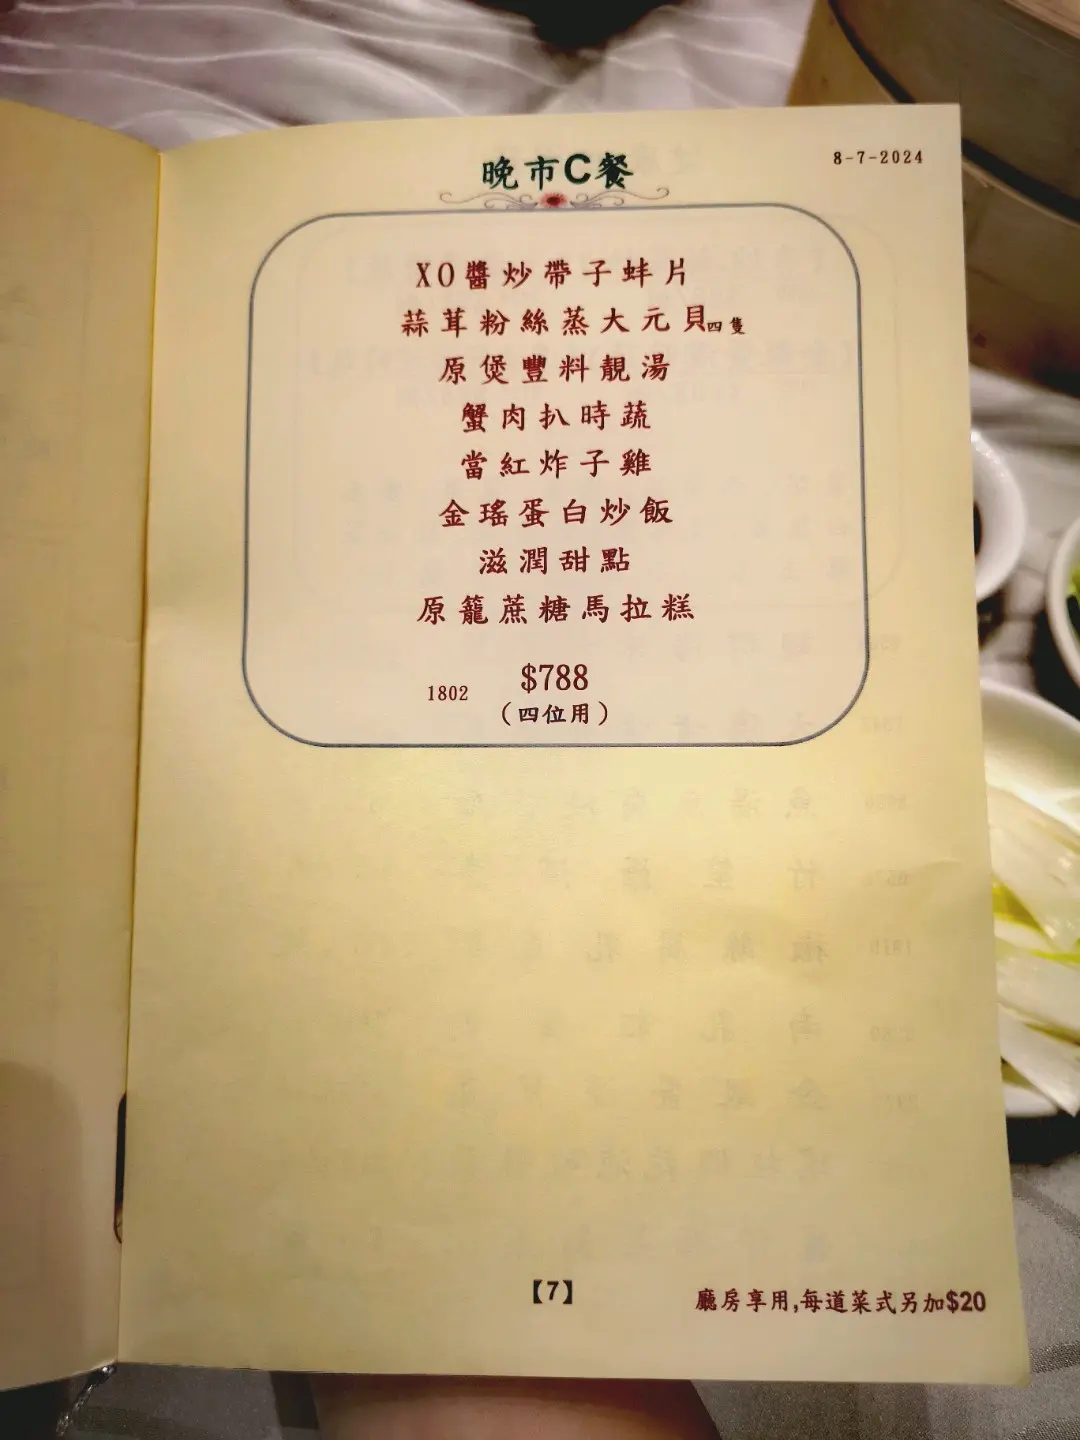 晚市C餐
8-7-2024
XO醬炒帶子蚌片
蒜茸粉絲蒸大元貝四隻
原煲豐料靚湯
蟹肉扒時蔬
當紅炸子雞
金瑤蛋白炒飯
滋潤甜點
原籠蔗糖馬拉糕
1802 $788
(四位用)
【7】
廳房享用,每道菜式另加$20